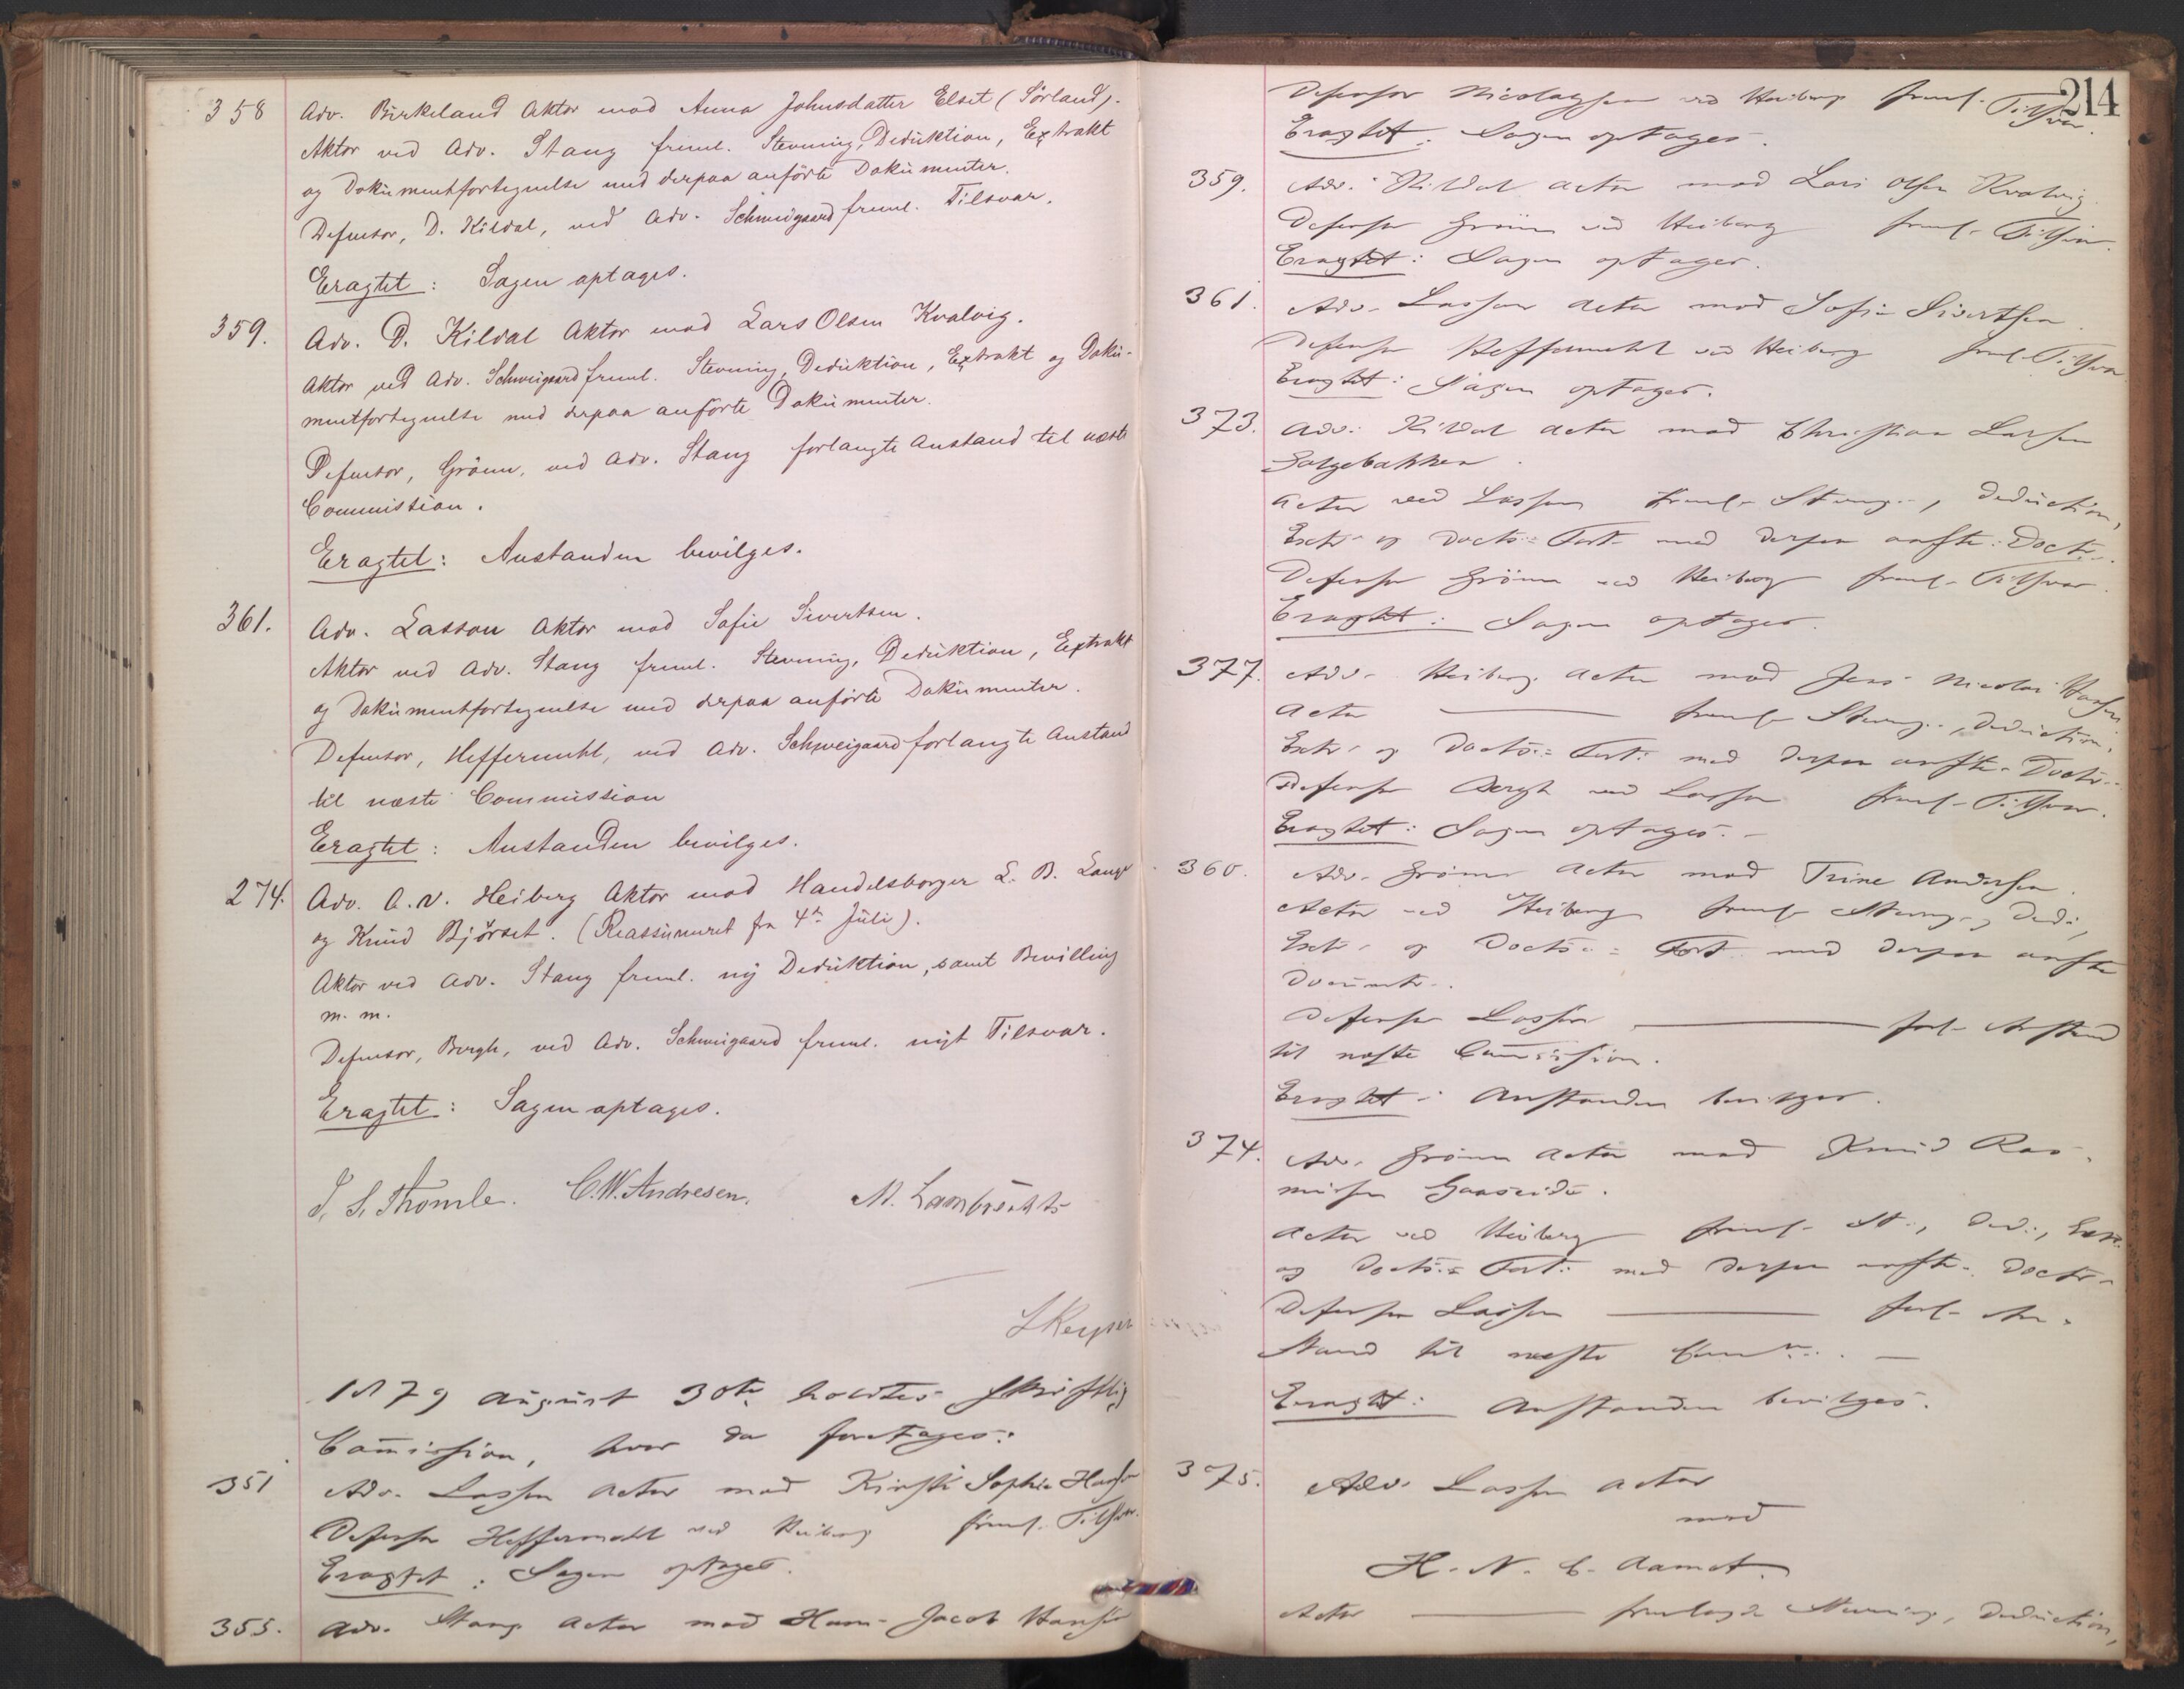 358 Adv. Birkeland Aktor mod Anna Johnsdatter Elset (Sörland).
Aktor ved Adv. Stang freml. Stevning, Deduktion, Extrakt
og Dokumentfortegnelse med derpaa anförte Dokumenter.
Defensor, D. Kildal, ved Adv. Schweigaard freml. Tilsvar.
Eragtet: Sagen optages.
359. Adv. D. Kildal Aktor mod Lars Olsen Kvalvig.
Aktor ved Adv. Schweigaard freml. Stevning, Deduktion, Extrakt og Doku-
mentfortegnelse med derpaa anförte Dokumenter.
Defensor, Grönn, ved Adv. Stang forlangte Anstand til næste
Commission.
Eragtet: Anstanden bevilges.
361. Adv. Lasson Aktor mod Sofie Sivertsen.
Aktor ved Adv. Stang freml. Stevning, Deduktion, Extrakt
og Dokumentfortegnelse med derpaa anförte Dokumenter.
Defensor, Heffermehl, ved Adv. Schweigaard forlangte Anstand
til næste Commission
Eragtet: Anstanden bevilges.
274. Adv. A. V. Heiberg Aktor mod Handelsborger L. B. Lange
og Knud Björset. (Reassumeret fra 4de Juli).
Aktor ved Adv. Stang freml. ny Deduktion, samt Bevilling
m. m.
Defensor, Bergh, ved Adv. Schweigaard freml. nyt Tilsvar.
Eragtet: Sagen optages.
C.W. Andresen. M. Lambrechts
1879 August 30te holdtes skriftlig
Commission, hvor da foretages:
351 Adv. Lasson Actor mod Kirsti Sophie Hansen
Defensor Heffermehl ved Heiberg freml. Tilsvar.
Eragtet: Sagen optages.
355. Adv. Stang Actor mod Hans Jacob Hansen
214
Defensor Nicolaysen ved Heiberg freml. Tilsvar.
Eragtet: Sagen optages.
359. Adv. Kildal Actor mod Lars Olsen Kvalvig.
Defensor Grönn ved Heiberg freml. Tilsvar.
Eragtet: Sagen optages.
361. Adv. Lasson Actor mod Sofie Sivertsen.
Defensor Heffermehl ved Heiberg freml. Tilsvar
Eragtet: Sagen optages.
373. Adv. Kildal Actor mod Christian Larsen
Actor ved Lasson freml. Stevng., Deduction,
Extr. og Docts.= Fort. med derpaa anfte. Doctr.
Defensor Grönn ved Heiberg freml. Tilsvar.
Eragtet: Sagen optages.
377. Adv. Heiberg Actor mod Jens Nicolai Hansen
Actor — freml. Stevng., Deduction,
Extr. og Docts.= Fort. med derpaa anfte. Doctr.
Defensor Bergh ved Lasson freml. Tilsvar.
Eragtet: Sagen optages. —
360. Adv. Grönn Actor mod Trine Andersen.
Actor ved Heiberg freml. Stevng., Ded.,
Extr. og Docts.= Fort. med derpaa anfte
Documtr.
Defensor Lasson — forl. Anstand
til næste Commission.
Eragtet: Anstanden bevilges.
374. Adv. Grönn Actor mod Knud Ras-
musen Gaaseide.
Actor ved Heiberg freml. St., Ded., Extr.
og Docts.= Fort. med derpaa anfte. Doctr.
Defensor Lasson — forl. An-
stand til næste Comn. —
Eragtet: Anstanden bevilges.
375. Adv. Lasson Actor
mod
H. N. C. Aamot.
Actor — fremlagde Stevning, Deduction,